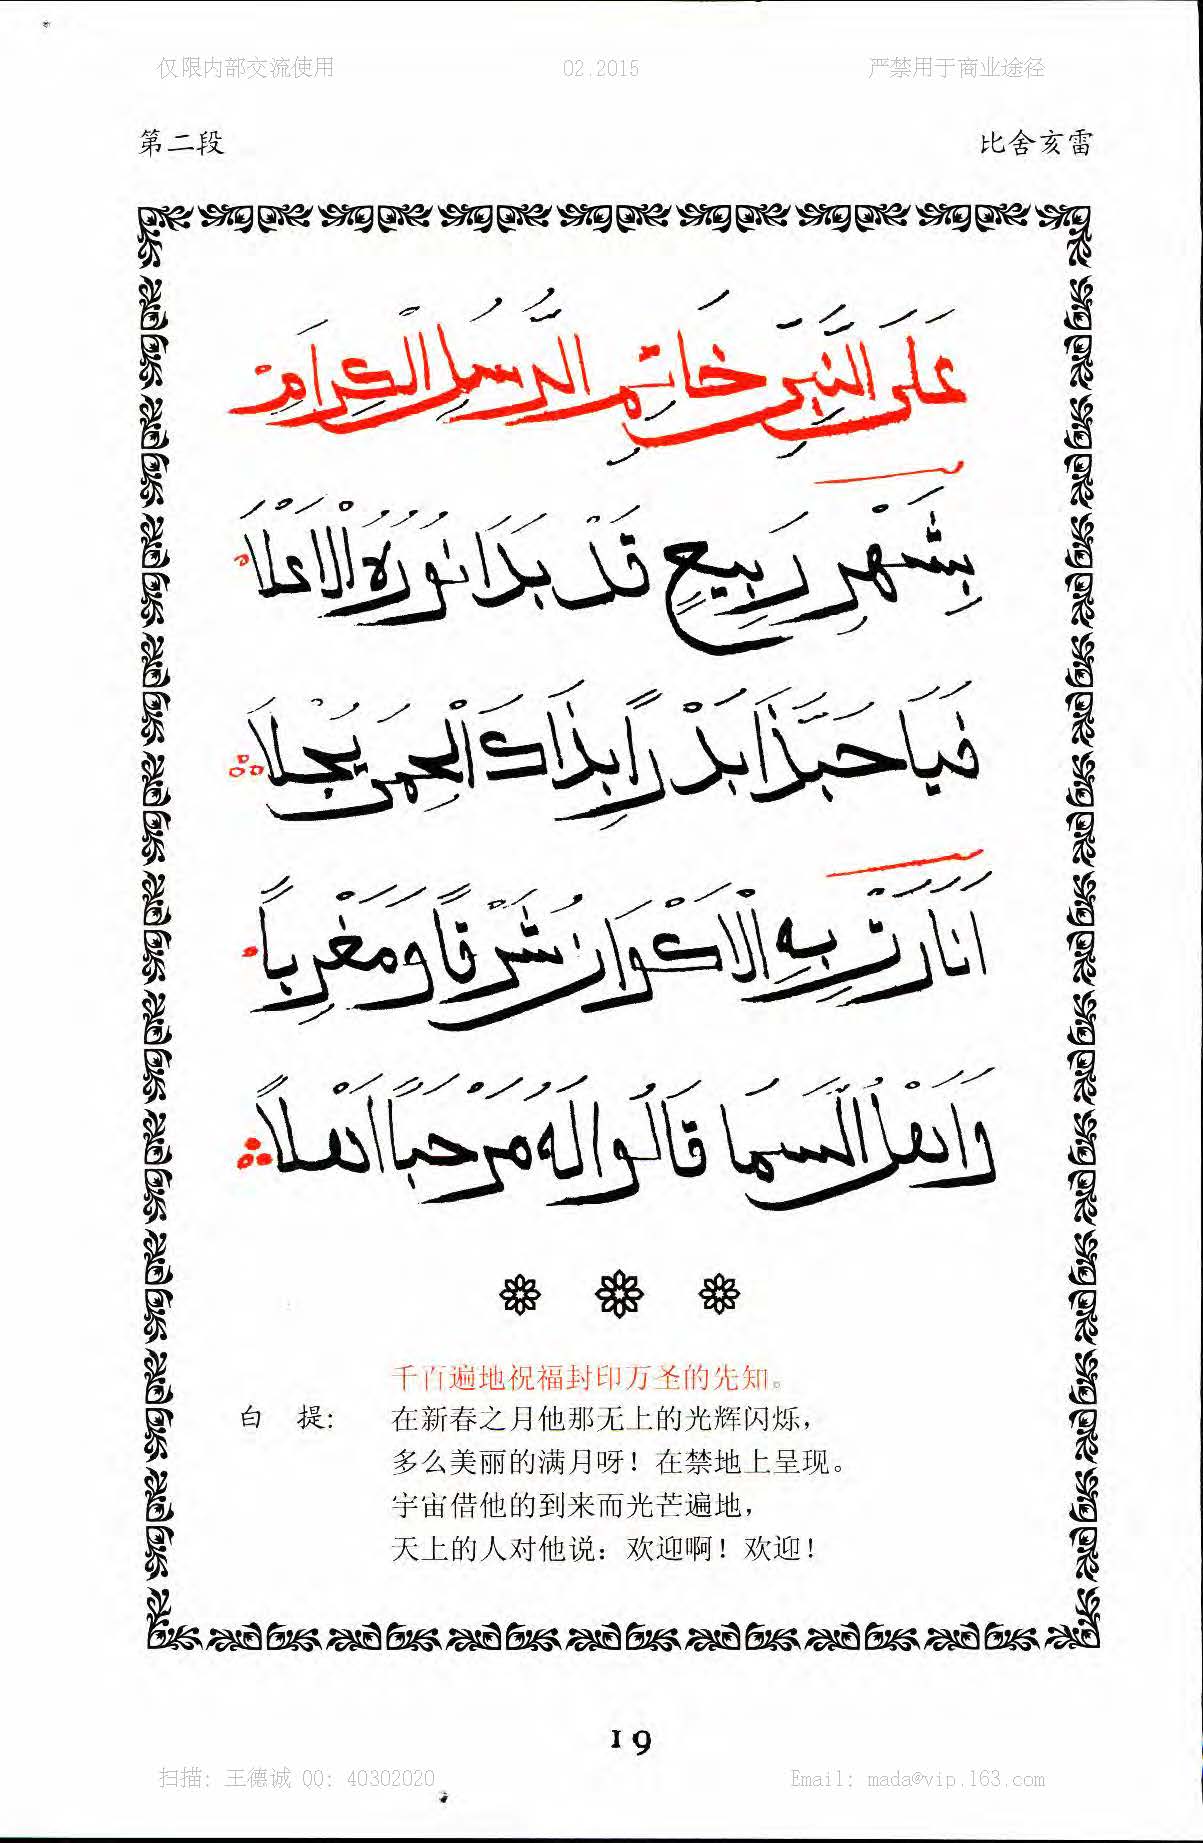 仅限内部交流使用 02.2015 严禁用于商业途径
第二段 比舍亥雷
عَلَى النَّبِيِّ خَاتِمِ الرُّسُلِ الْكِرَامِ
بِشَهْرِ رَبِيعٍ قَدْ بَدَا نُورُهُ الْاَعْلَا
فَيَا حَبَّذَا بَدْرًا بِذَاكَ الْحِمَى يُجْلَا
اَنَارَتْ بِهِ الْاَكْوَانُ شَرْقًا وَمَغْرِبًا
وَاَهْلُ السَّمَا قَالُوا لَهُ مَرْحَبًا اَهْلًا
千百遍地祝福封印万圣的先知。
白 提: 在新春之月他那无上的光辉闪烁，
多么美丽的满月呀！在禁地上呈现。
宇宙借他的到来而光芒遍地，
天上的人对他说：欢迎啊！欢迎！
19
扫描: 王德诚 QQ: 40302020 Email: mada@vip.163.com